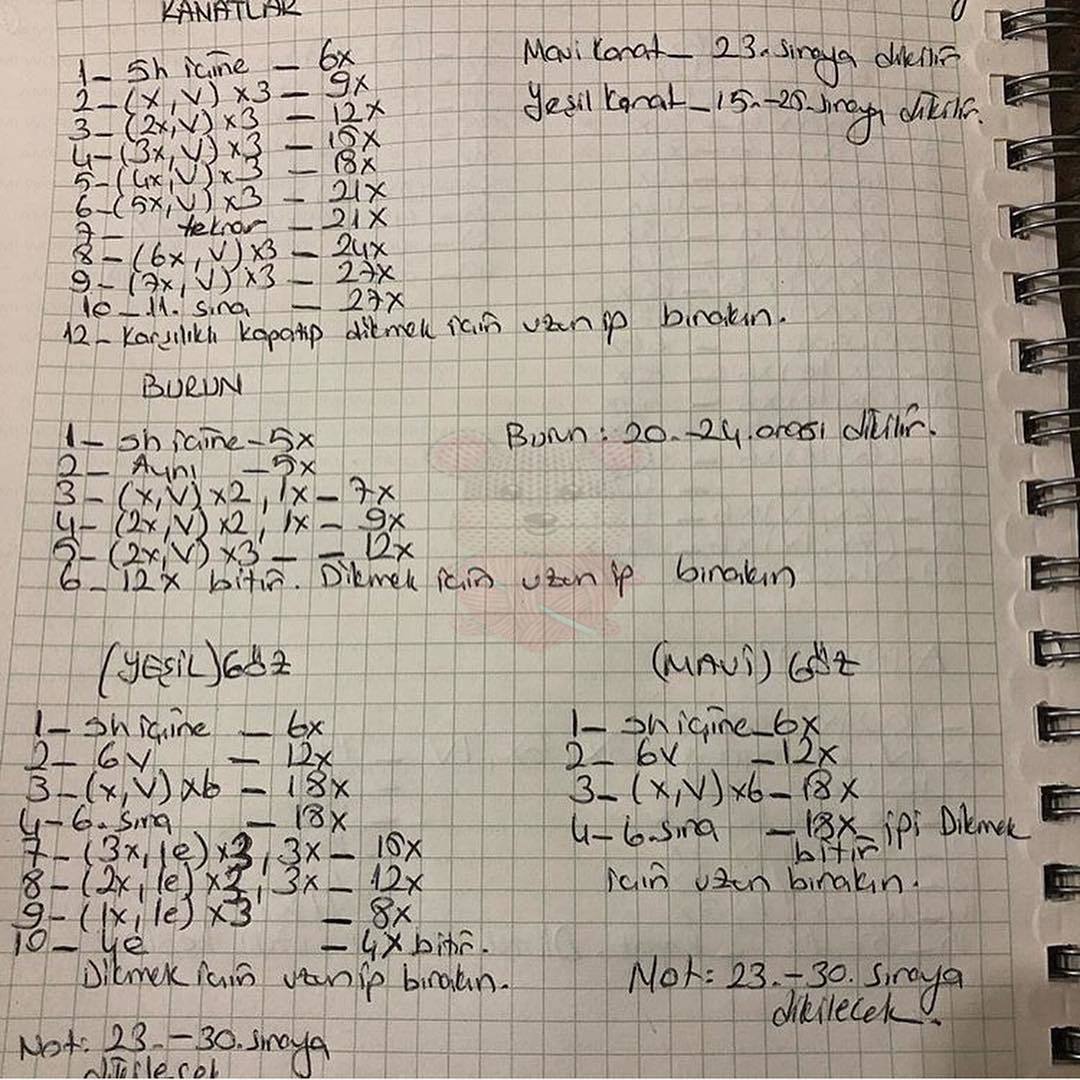 KANATLAR
1- Sh içine - 6x
2- (x,V) x3 - 9x
3- (2x,V) x3 - 12x
4- (3x,V) x3 - 15x
5- (4x,V) x3 - 18x
6- (5x,V) x3 - 21x
7- tekrar - 21x
8- (6x,V) x3 - 24x
9- (7x,V) x3 - 27x
10-11. sıra - 27x
12- Karşılıklı kapatıp dikmek için uzun ip bırakın.
Mavi Kanat - 23. sıraya dikilir
Yeşil Kanat - 15.-25. sıraya dikilir.
BURUN
1- sh içine - 5x
2- Aynı - 5x
3- (x,V) x2, 1x - 7x
4- (2x,V) x2, 1x - 9x
5- (2x,V) x3 - - 12x
6- 12x bitir. Dikmek için uzun ip bırakın
Burun: 20.-24. arası dikilir.
(YEŞİL) GÖZ
1- sh içine - 6x
2- 6V - 12x
3- (x,V) x6 - 18x
4-6. sıra - 18x
7- (3x,1e) x3, 3x - 15x
8- (2x,1e) x3, 3x - 12x
9- (1x,1e) x3 - 8x
10- 4e - 4x bitir.
Dikmek için uzun ip bırakın.
Not: 23.-30. sıraya
dikilecek
(MAVİ) GÖZ
1- sh içine - 6x
2- 6V - 12x
3- (x,V) x6 - 18x
4-6. sıra - 18x - ipi Dikmek
bitir
için uzun bırakın.
Not: 23.-30. sıraya
dikilecek.